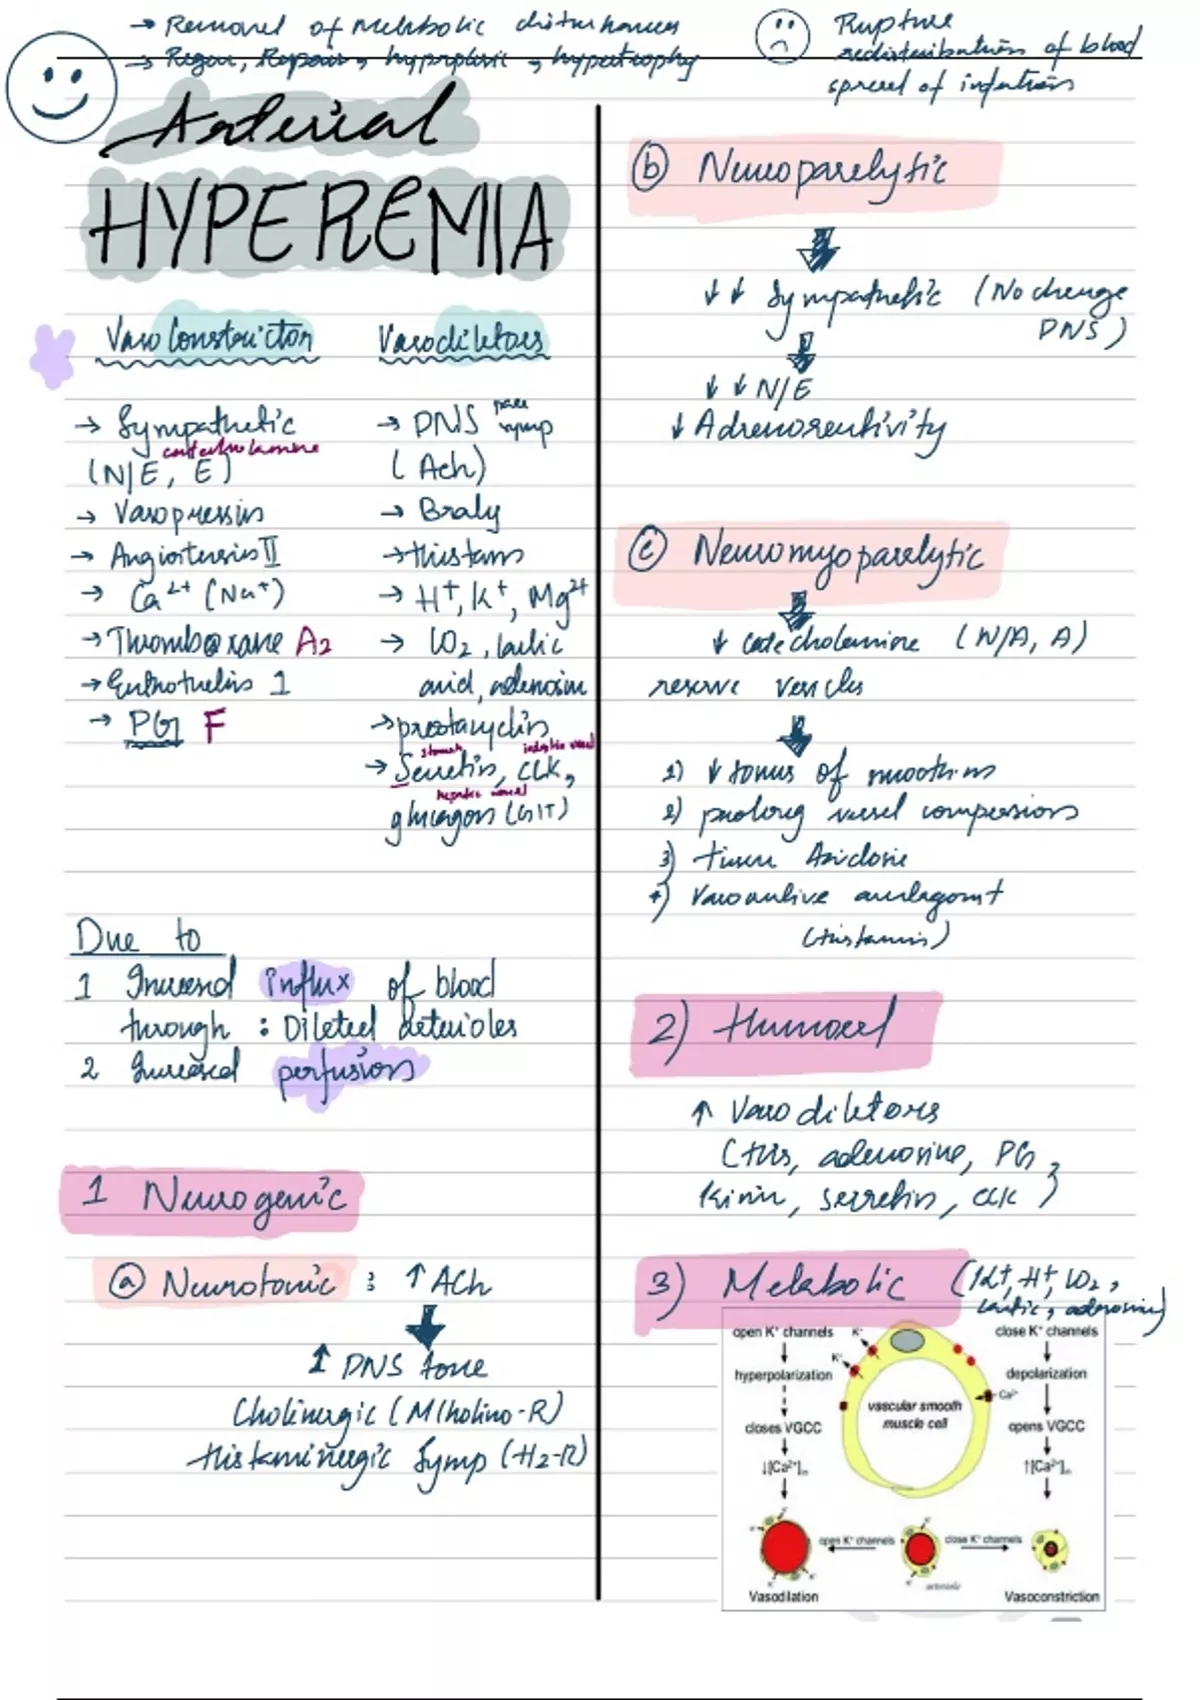 → Removal of Metabolic disturbances
→ Regen, Repair, hyperplasic, hypertrophy
Rupture
redistribution of blood
spread of infections
Arterial
HYPEREMIA
VasoConstrictor
→ Sympathetic
catecholamine
(N/E, E)
→ Vasopressin
→ Angiotensin II
→ Ca²⁺ (Na⁺)
→ Thromboxane A2
→ Endothelin 1
→ PG F
Vasodiletors
→ PNS para symp
(Ach)
→ Brady
→ Histam
→ H⁺, K⁺, Mg²⁺
→ CO2, lactic
acid, adenosin
→ prostacyclin
stomach intestine vessel
→ Secretin, CCK,
hepatic vessel
glucagon (GIT)
Due to
1 Increased influx of blood
through : Dileted arterioles
2 Increased perfusion
1 Neurogenic
a Neurotonic : ↑ ACh
↑ PNS tone
Cholinergic (MCholino-R)
Histaminergic Symp (H2-R)
b Neuroparelytic
↓↓ Sympathetic (No change
PNS)
↓↓ N/E
↓ Adrenosensitivity
c Neuromyoparelytic
↓ catecholamine (N/A, A)
reserve vesicles
1) ↓ tonus of smooth m
2) prolong vessel compression
3) tissue Acidosis
4) Vasoactive
(Histamin)
2) Humoral
↑ Vasodiletors
(His, adenosine, PG,
Kinin, secretin, CCK)
3) Metabolic (K⁺, H⁺, CO2,
lactic, adenosin)
open K⁺ channels
hyperpolarization
closes VGCC
↓[Ca²⁺]in
K⁺
K⁺
vascular smooth
muscle cell
Ca²⁺
close K⁺ channels
depolarization
opens VGCC
↑[Ca²⁺]in
open K⁺ channels
close K⁺ channels
K⁺
K⁺
K⁺
K⁺
K⁺
arteriole
Vasodilation
Vasoconstriction